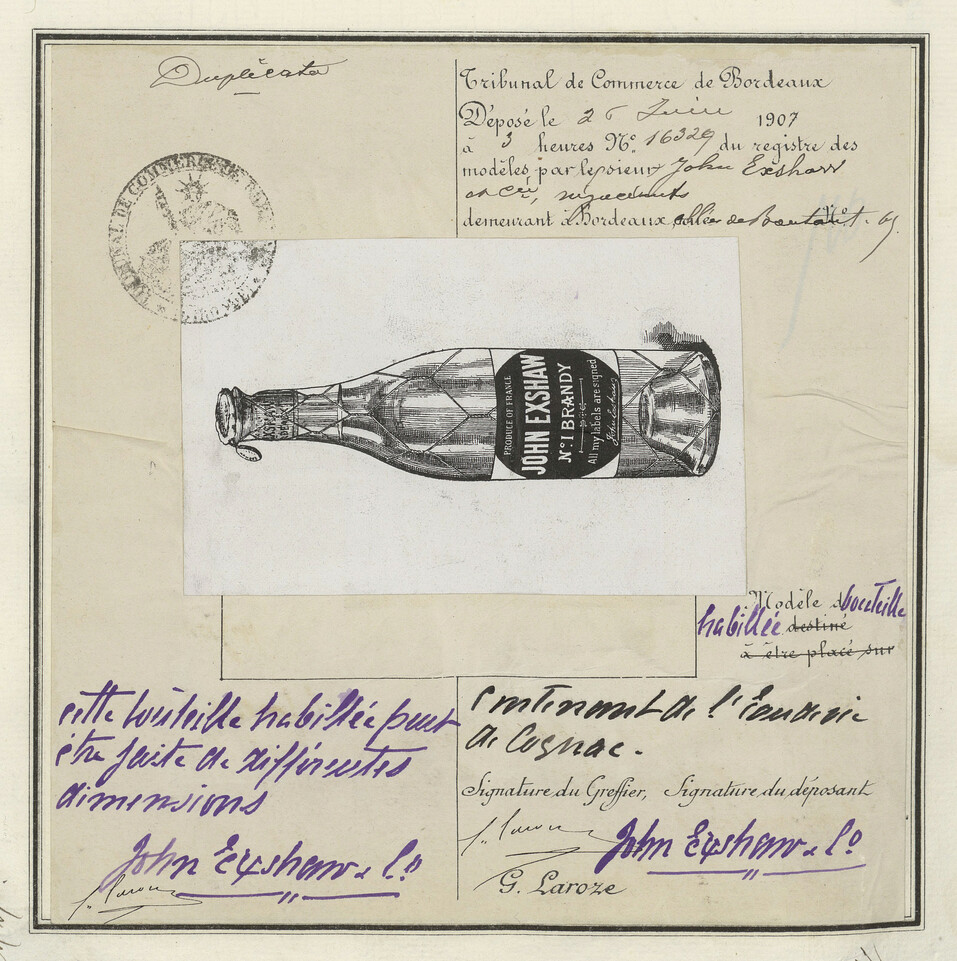 Duplicata
Tribunal de Commerce de Bordeaux
Déposé le 26 Juin 1907
à 3 heures No. 16329 du registre des
modèles, par le sieur John Exshaw
et Cie, négociants
demeurant à Bordeaux, allées de Boutaut
TRIBUNAL DE COMMERCE DE
PRODUCE OF FRANCE
JOHN EXSHAW
No. 1 BRANDY
All my labels are signed
John Exshaw
Modèle de bouteille
habillée destiné
à être placé sur
cette bouteille habillée peut
être faite de différentes
dimensions
John Exshaw & Co
contenant de l'Eau de vie
de Cognac.
Signature du Greffier, Signature du déposant
John Exshaw & Co
G. Laroze